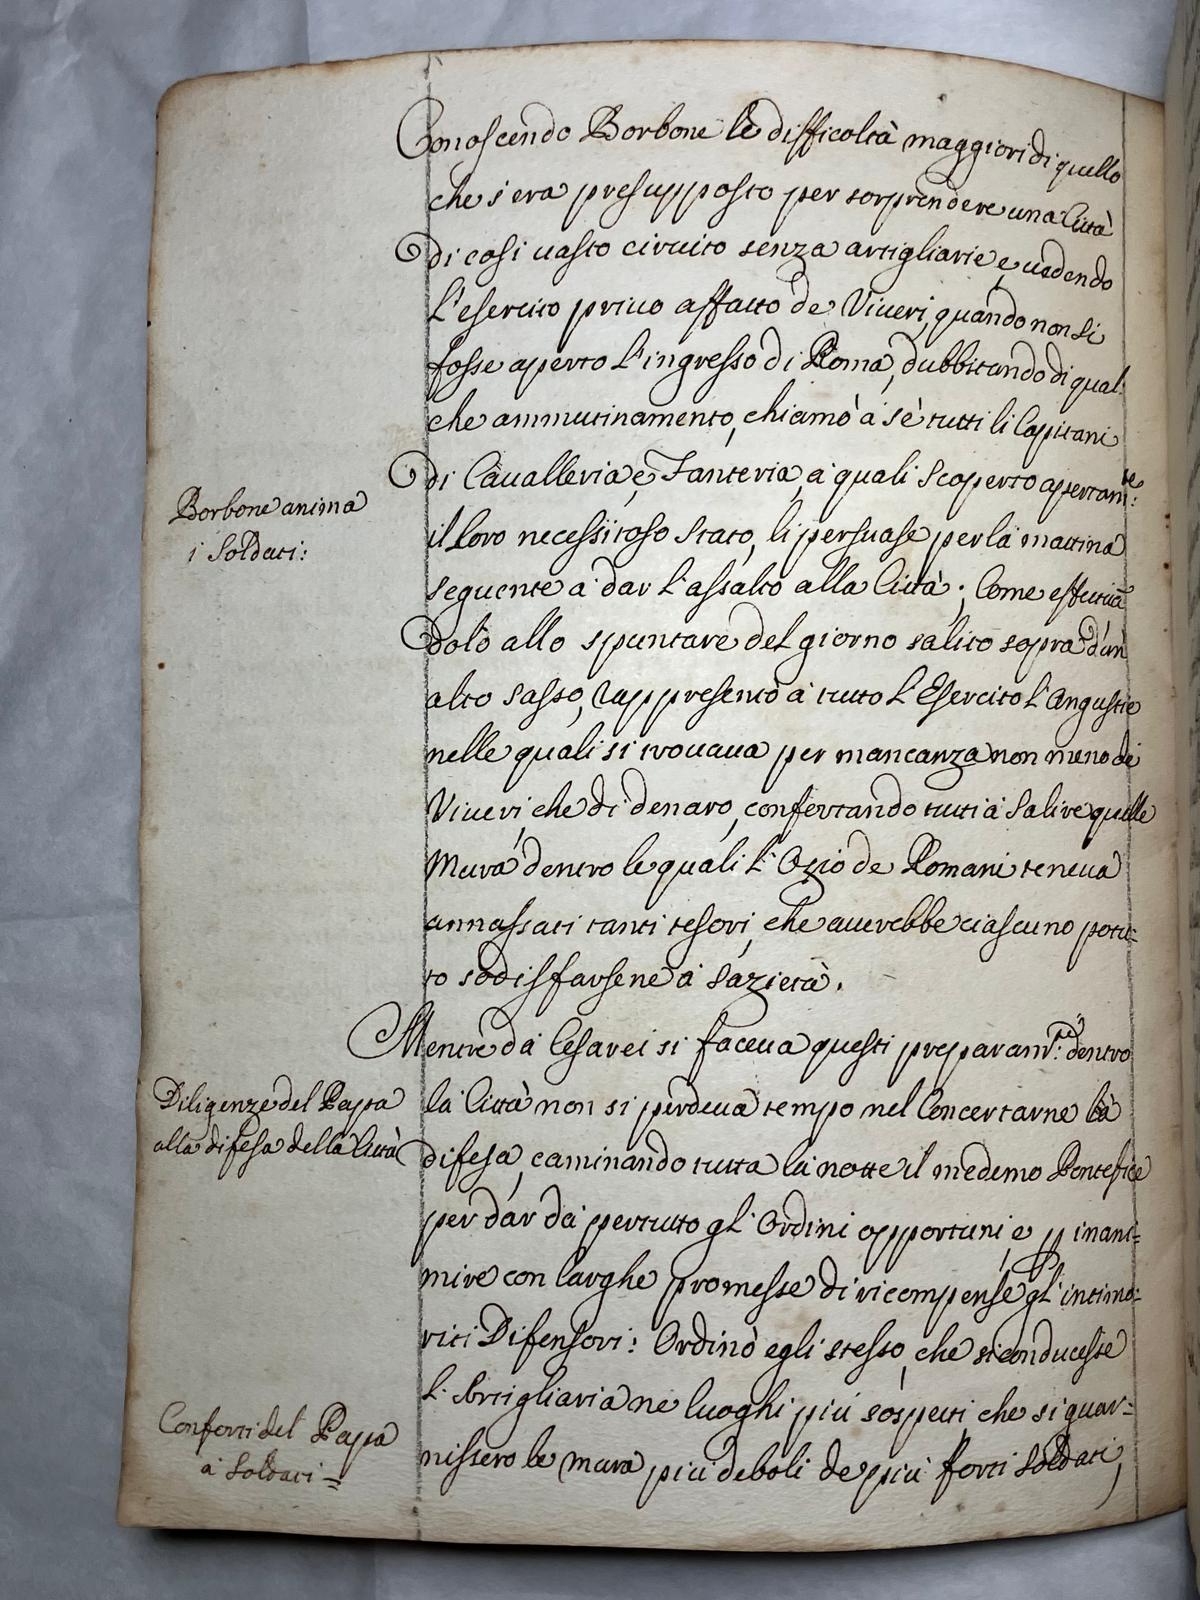 Conoscendo Borbone le difficoltà maggiori di quello
che s'era presupposto per sorprendere una Città
di così uasto circuito senza artigliarie, e uedendo
l'esercito priuo affatto de Viueri, quando non si
fosse aperto l'ingresso di Roma, dubbitando di qual:
che ammutinamento, chiamò à sè tutti li Capitani
di Caualleria, è Fanteria, à quali scoperto apertam:te
Borbone anima
i Soldati:
il loro necessitoso stato, li persuase per la mattina
seguente à dar l'assalto alla Città; Come effettuā
dolo allo spuntare del giorno salito sopra d'un
alto sasso, rappresentò à tutto l'Esercito l'Angustie
nelle quali si trouaua per mancanza non meno di
Viueri, che di denaro, confortando tutti à salire quelle
Mura dentro le quali l'Ozio de Romani teneua
ammassati tanti tesori, che auerebbe ciascuno potu=
to sodisfarsene à sazietà.
Mentre da Cesarei si faceua questi preparam:ti dentro
Diligenze del Papa
alla difesa della Città
la Città non si perdeua tempo nel Concertarne la
difesa, caminando tutta la notte il medemo Pontefice
per dar da pertutto gl'Ordini opportuni, e p inani=
mire con larghe promesse di ricompense gl'intimo=
riti Difensori: Ordinò egli stesso, che si conducesse
l'Artigliaria ne luoghi più sospetti che si guar=
Conforti del Papa
a Soldati=
nissero le mura più deboli de più forti soldati,